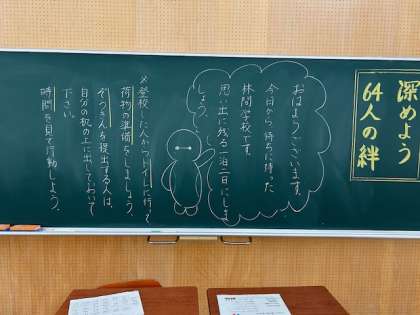 深めよう
64人の絆
おはようございます。
今日から待ちに待った
林間学校です。
思い出に残る一泊二日にしま
しょう。
〆登校した人からトイレに行って
荷物の準備をしましょう。
ぞうきんを提出する人は、
自分の机の上に出しておいて
下さい。
時間を見て行動しよう。